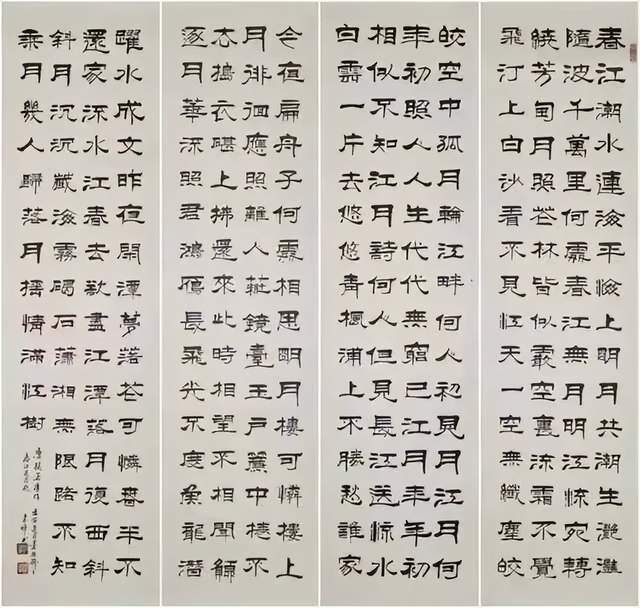 春江潮水連海平海上明月共潮生灧灩
隨波千萬里何處春江無月明江流宛轉
繞芳甸月照花林皆似霰空裏流霜不覺
飛汀上白沙看不見江天一空無纖塵皎
皎空中孤月輪江畔何人初見月江月何
年初照人人生代代無窮已江月年年初
相似不知江月詩何人但見長江送流水
白雲一片去悠悠青楓浦上不勝愁誰家
今夜扁舟子何處相思明月樓可憐樓上
月徘徊應照離人莊鏡臺玉戶簾中棬不
去搗衣碪上拂還來此時相望不相聞願
逐月華流照君鴻雁長飛光不度魚龍潛
躍水成文昨夜閑潭夢落花可憐春半不
還家流水江春去欲盡江潭落月復西斜
斜月沉沉藏海霧碣石瀟湘無限路不知
乘月幾人歸落月搖情滿江樹